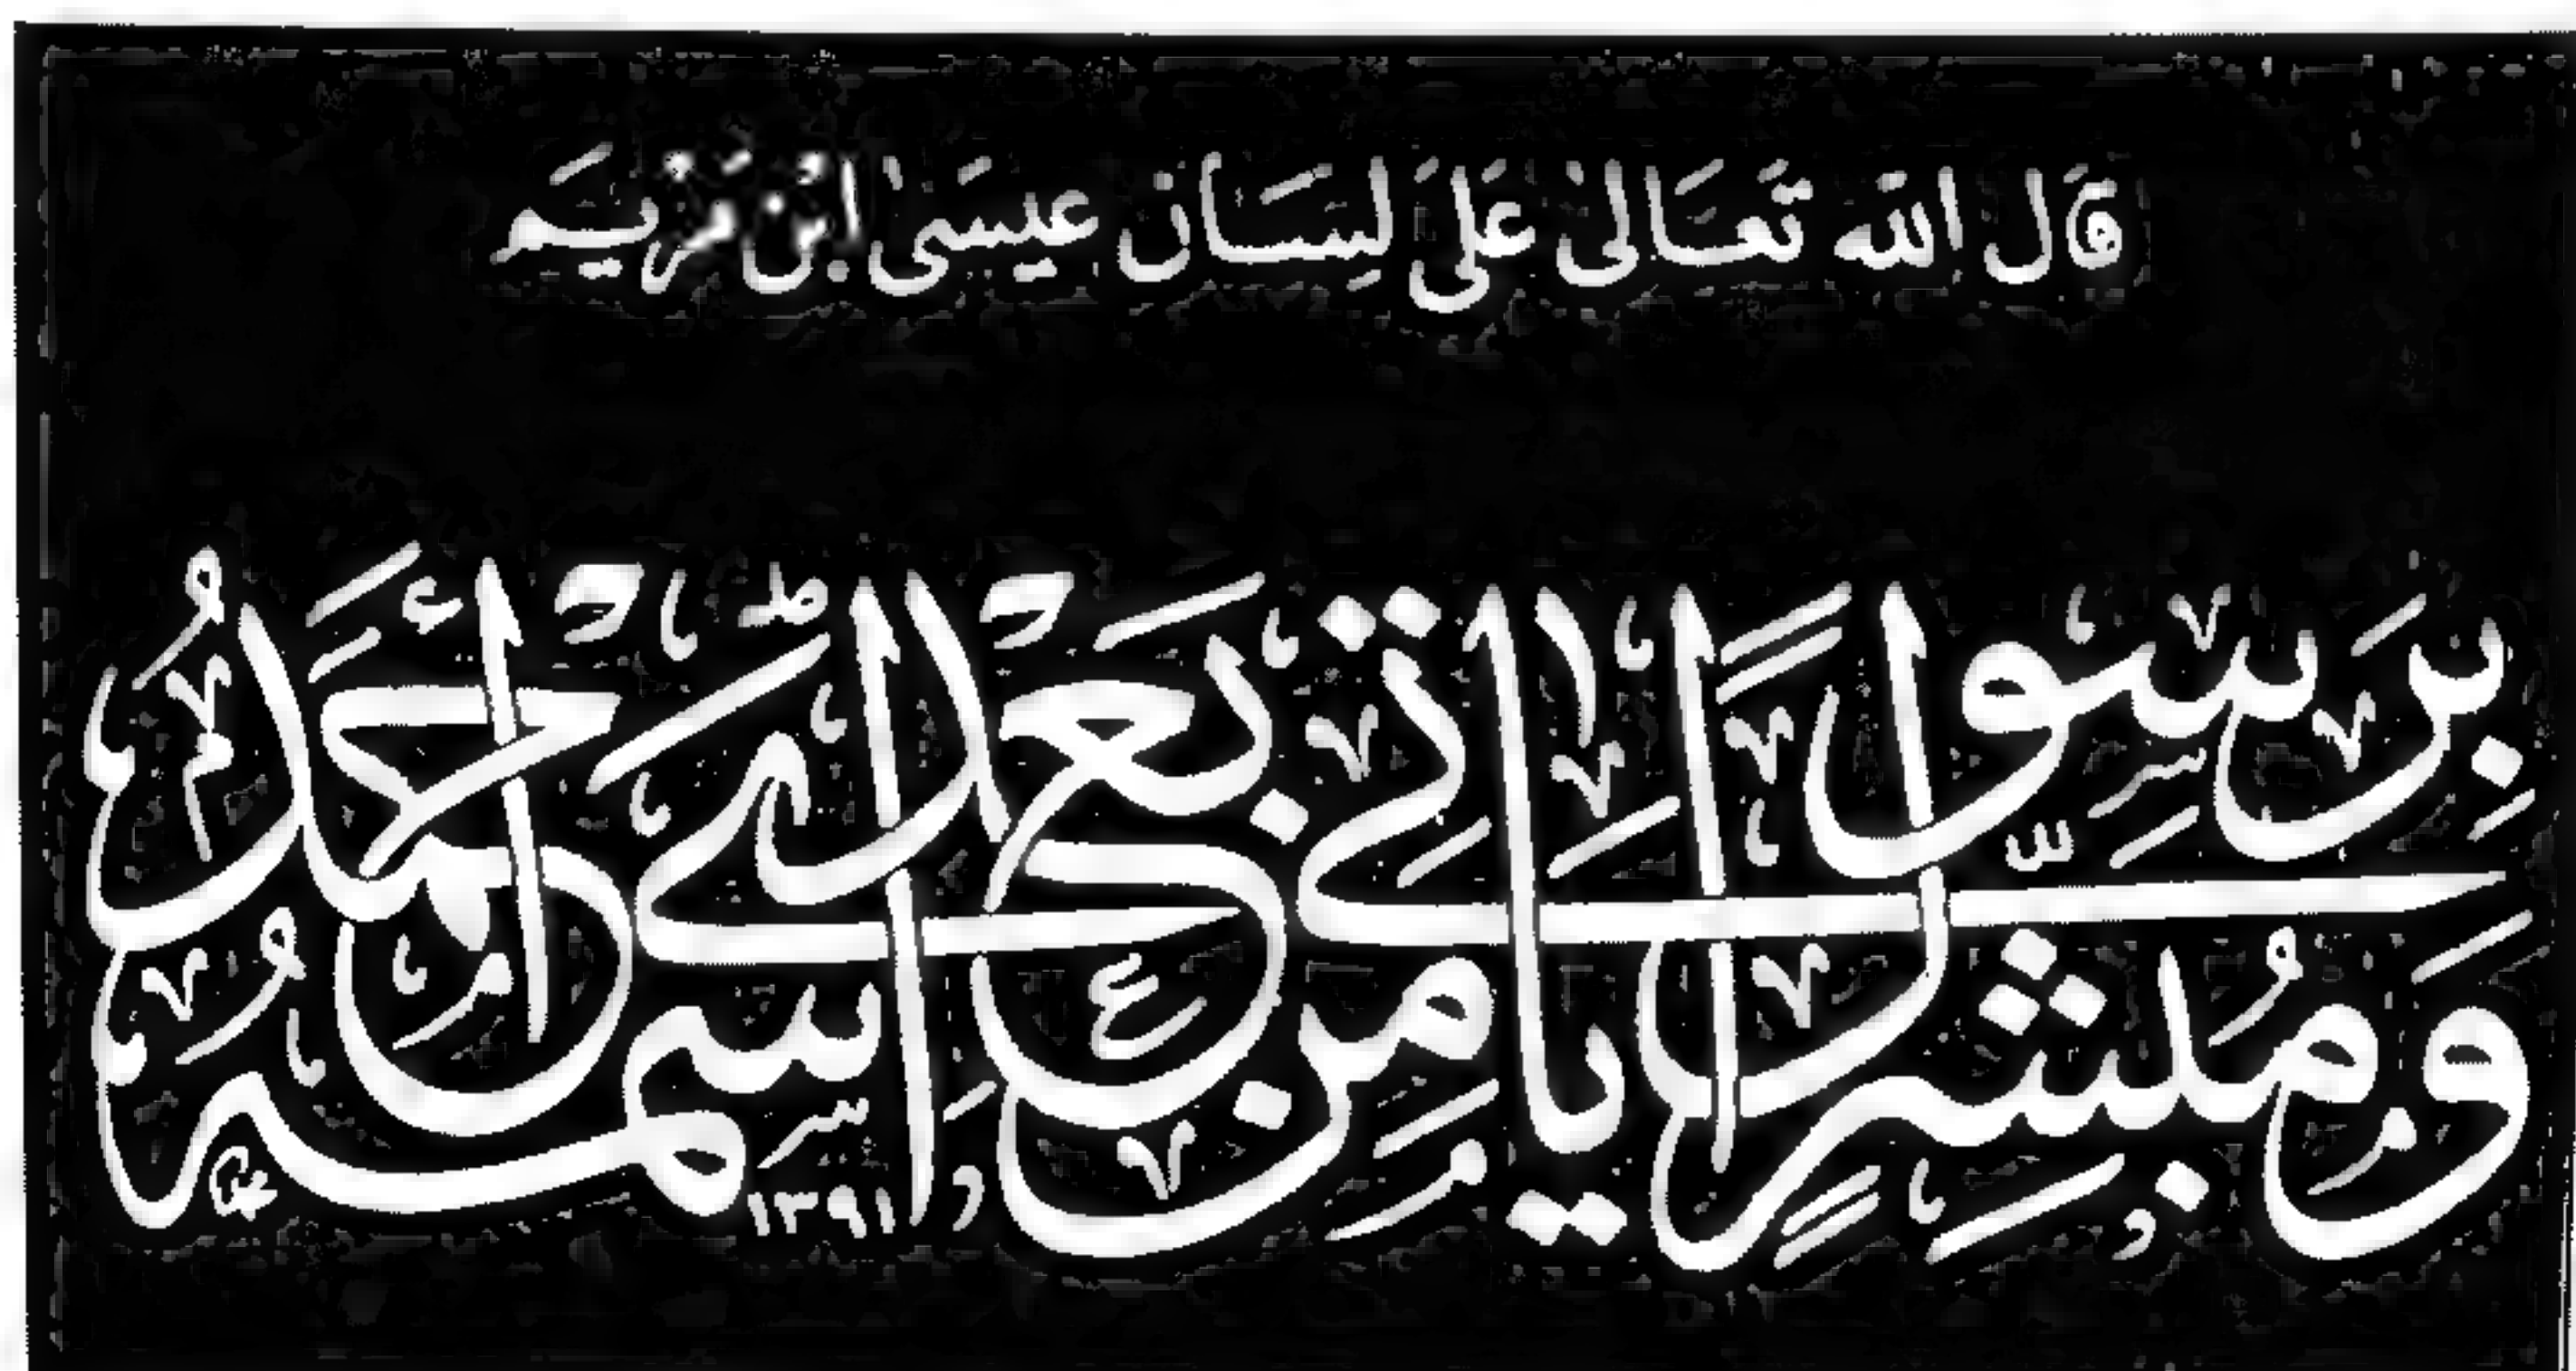 قَالَ اللّٰه تَعَالىٰ عَلىَ لِسَان عيسَىٰ ابْن مَرْيَم
وَمُبَشِّرًا بِرَسُولٍ يَأْتِي مِنْ بَعْدِي اسْمُهُ أَحْمَدُ
١٣٩١